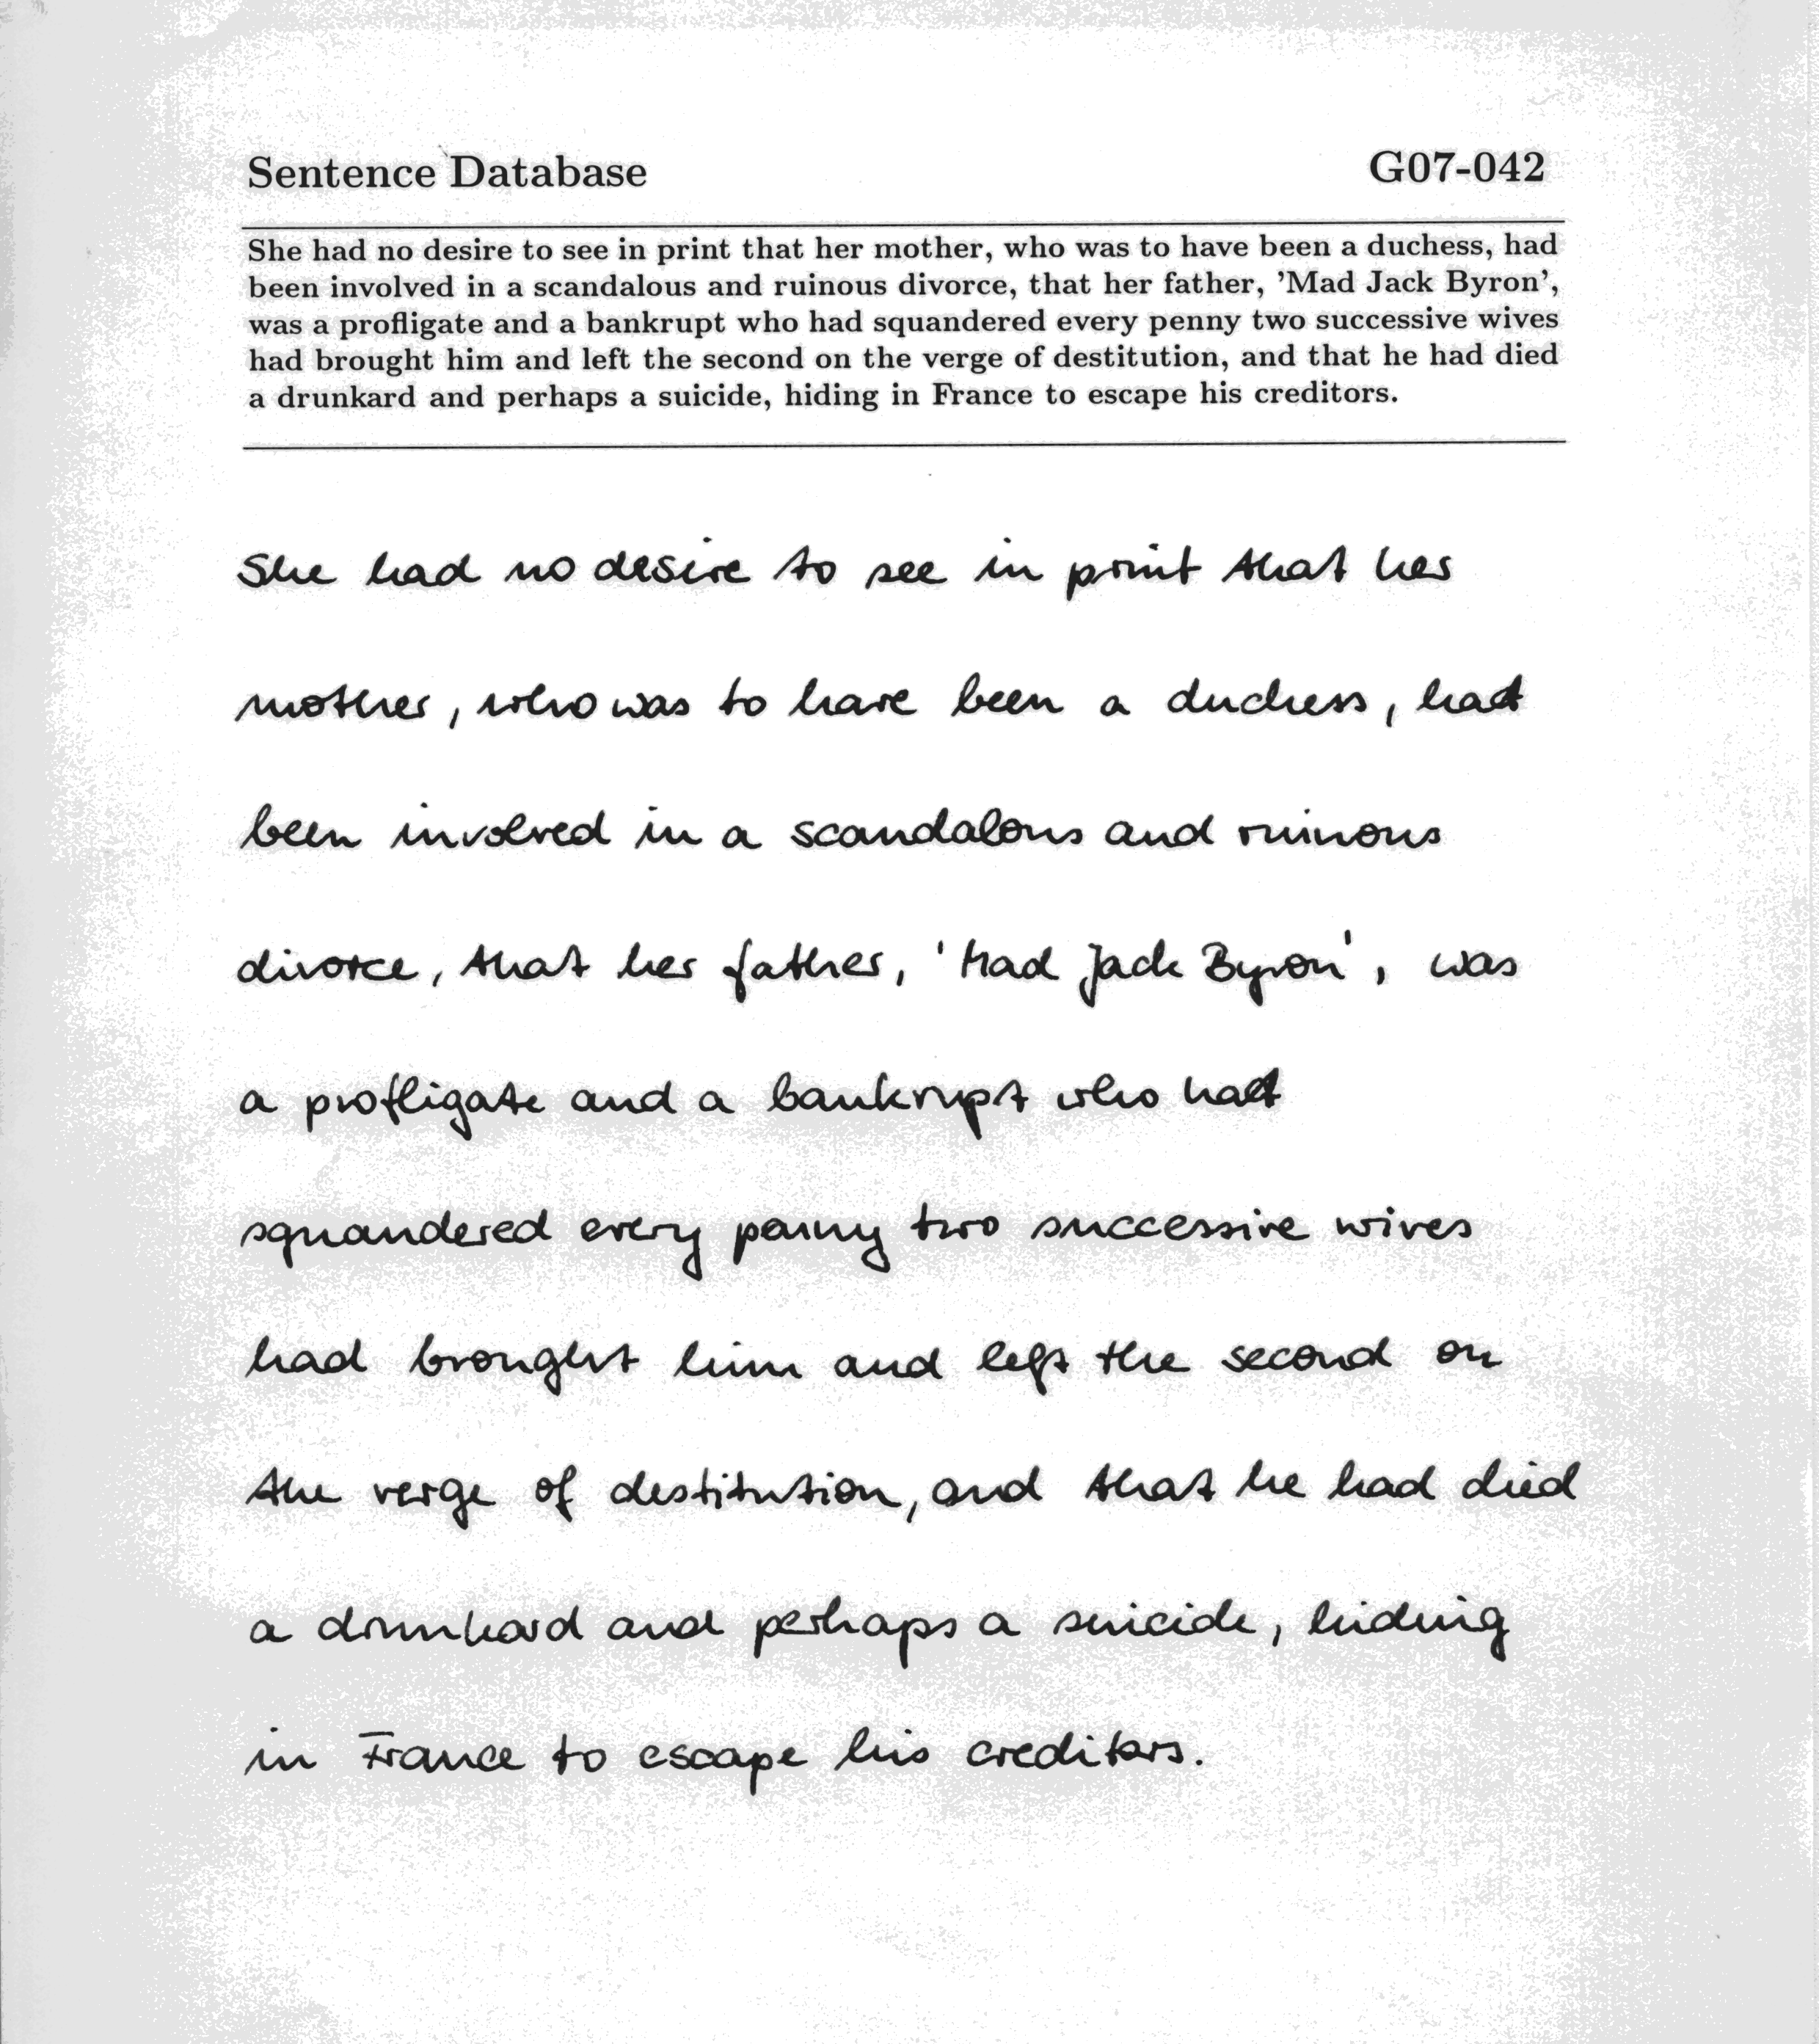 Sentence Database G07-042
She had no desire to see in print that her mother, who was to have been a duchess, had
been involved in a scandalous and ruinous divorce, that her father, 'Mad Jack Byron',
was a profligate and a bankrupt who had squandered every penny two successive wives
had brought him and left the second on the verge of destitution, and that he had died
a drunkard and perhaps a suicide, hiding in France to escape his creditors.
She had no desire to see in print that her
mother, who was to have been a duchess, had
been involved in a scandalous and ruinous
divorce, that her father, 'Mad Jack Byron', was
a profligate and a bankrupt who had
squandered every penny two successive wives
had brought him and left the second on
the verge of destitution, and that he had died
a drunkard and perhaps a suicide, hiding
in France to escape his creditors.